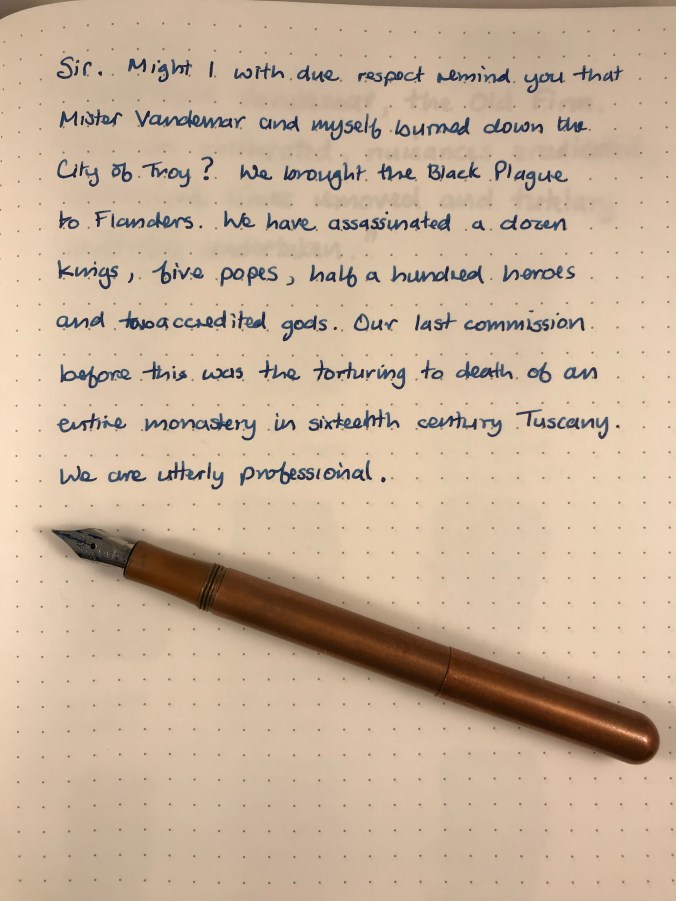 Sir. Might I with due respect remind you that
Mister Vandemar and myself burned down the
City of Troy? We brought the Black Plague
to Flanders. We have assassinated a dozen
kings, five popes, half a hundred heroes
and two accredited gods. Our last commission
before this was the torturing to death of an
entire monastery in sixteenth century Tuscany.
We are utterly professional.